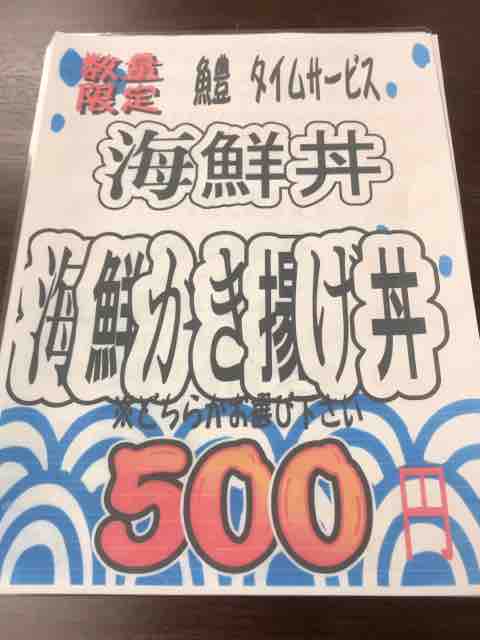 数量
限定
鱧 タイムサービス
海鮮丼
海鮮かき揚げ丼
※どちらかお選び下さい
500円